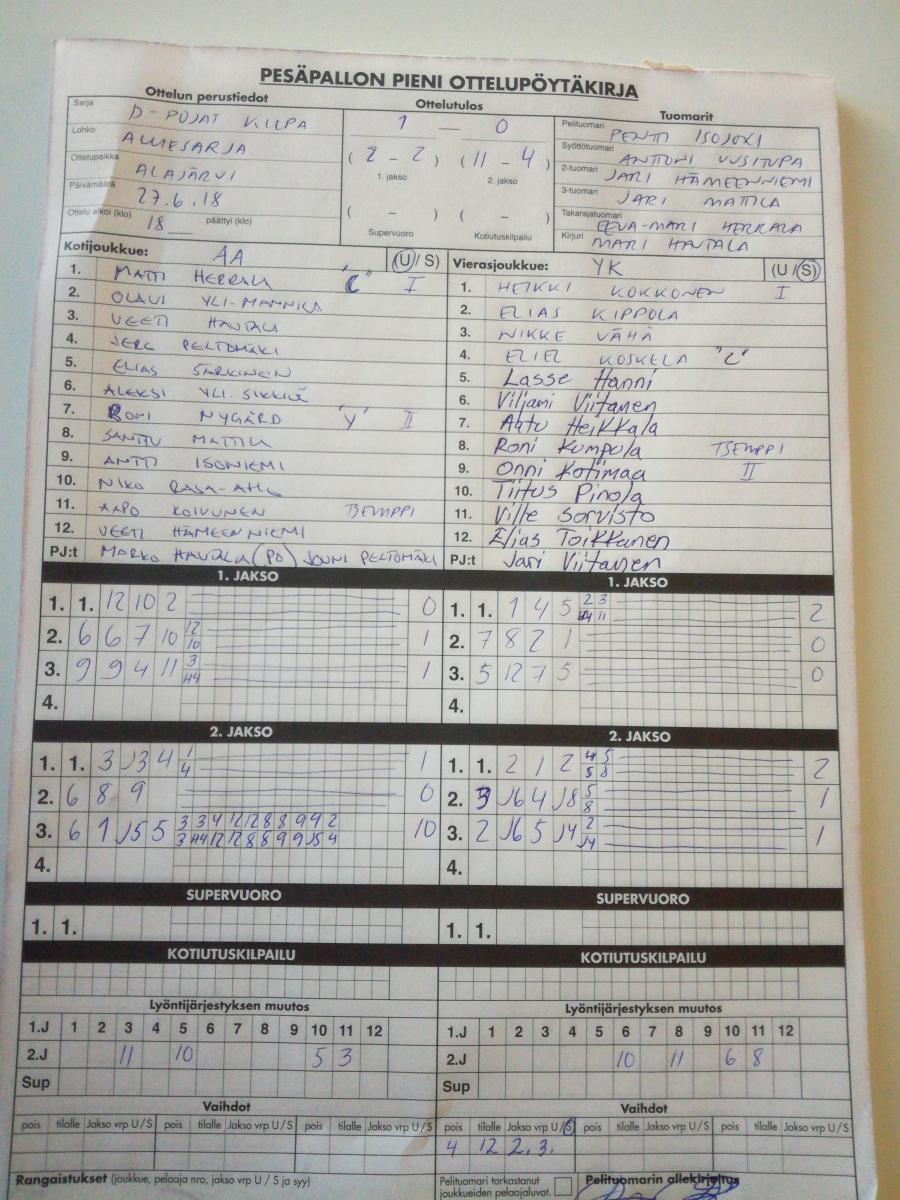 PESÄPALLON PIENI OTTELUPÖYTÄKIRJA
Ottelun perustiedot
Sarja D-POJAT KILPA
Lohko ALUESARJA
Ottelupaikka ALAJÄRVI
Päivämäärä 27.6.18
Ottelu alkoi (klo) 18 päättyi (klo)
Ottelutulos
1 — 0
(2 - 2) (11 - 4)
1. jakso 2. jakso
( - ) ( - )
Supervuoro Kotiutuskilpailu
Tuomarit
Pelituomari PENTTI ISOJOKI
Syöttötuomari ANTTONI UUSITUPA
2-tuomari JARI HÄMEENNIEMI
3-tuomari JARI MATTILA
Takarajatuomari EEVA-MARI HERRALA
Kirjuri MARI HAUTALA
Kotijoukkue: AA (U/S)
1. MATTI HERRALA "C" I
2. OLAVI YLI-MANNILA
3. VEETI HAUTALA
4. JERE PELTOMÄKI
5. ELIAS SARKINEN
6. ALEKSI YLI-SIKKILÄ
7. ROMI NYGÅRD "V" II
8. SANTTU MATTILA
9. ANTTI ISONIEMI
10. NIKO RASA-AHO
11. AAPO KOIVUNEN TSEMPPI
12. VEETI HÄMEENNIEMI
PJ:t MARKO HAUTALA (PO) JOUNI PELTOMÄKI
Vierasjoukkue: YK (U/S)
1. HEIKKI KOKKONEN I
2. ELIAS KIPPOLA
3. NIKKE VÄHÄ
4. ELIEL KOSKELA "C"
5. Lasse Hanni
6. Viljami Viitanen
7. Aatu Heikkala
8. Roni Kumpula TSEMPPI
9. Onni Kotimaa II
10. Tiitus Pinola
11. Ville Sorvisto
12. Elias Toikkanen
PJ:t Jari Viitanen
1. JAKSO
1. 1. 12 10 2 0
2. 6 6 7 10 12 1
10
3. 9 9 4 11 3 1
H4
4.
1. JAKSO
1. 1. 1 4 5 2 3 2
H4 11
2. 7 8 2 1 0
3. 5 12 7 5 0
4.
2. JAKSO
1. 1. 3 J3 4 1 1
4
2. 6 8 9 0
3. 6 1 J5 5 3 3 4 12 12 8 8 9 9 2 10
3 H4 12 12 8 8 9 9 J5 4
4.
2. JAKSO
1. 1. 2 1 2 4 5 2
5 8
2. 3 J6 4 J8 5 1
8
3. 2 J6 5 J4 2 1
J4
4.
SUPERVUORO
1. 1.
SUPERVUORO
1. 1.
KOTIUTUSKILPAILU
KOTIUTUSKILPAILU
Lyöntijärjestyksen muutos
1.J 1 2 3 4 5 6 7 8 9 10 11 12
2.J 11 10 5 3
Sup
Lyöntijärjestyksen muutos
1.J 1 2 3 4 5 6 7 8 9 10 11 12
2.J 10 11 6 8
Sup
Vaihdot
pois tilalle Jakso vrp U/S pois tilalle Jakso vrp U/S pois tilalle Jakso vrp U/S
Vaihdot
pois tilalle Jakso vrp U/S pois tilalle Jakso vrp U/S pois tilalle Jakso vrp U/S
4 12 2. 3.
Rangaistukset (joukkue, pelaaja nro, jakso vrp U / S ja syy)
Pelituomari tarkastanut
joukkueiden pelaajaluvat.
Pelituomarin allekirjoitus